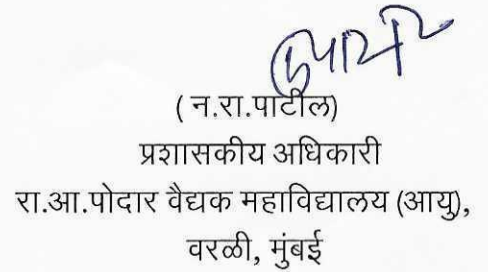 ( न.रा.पाटील)
प्रशासकीय अधिकारी
रा.आ.पोदार वैद्यक महाविद्यालय (आयु),
वरळी, मुंबई